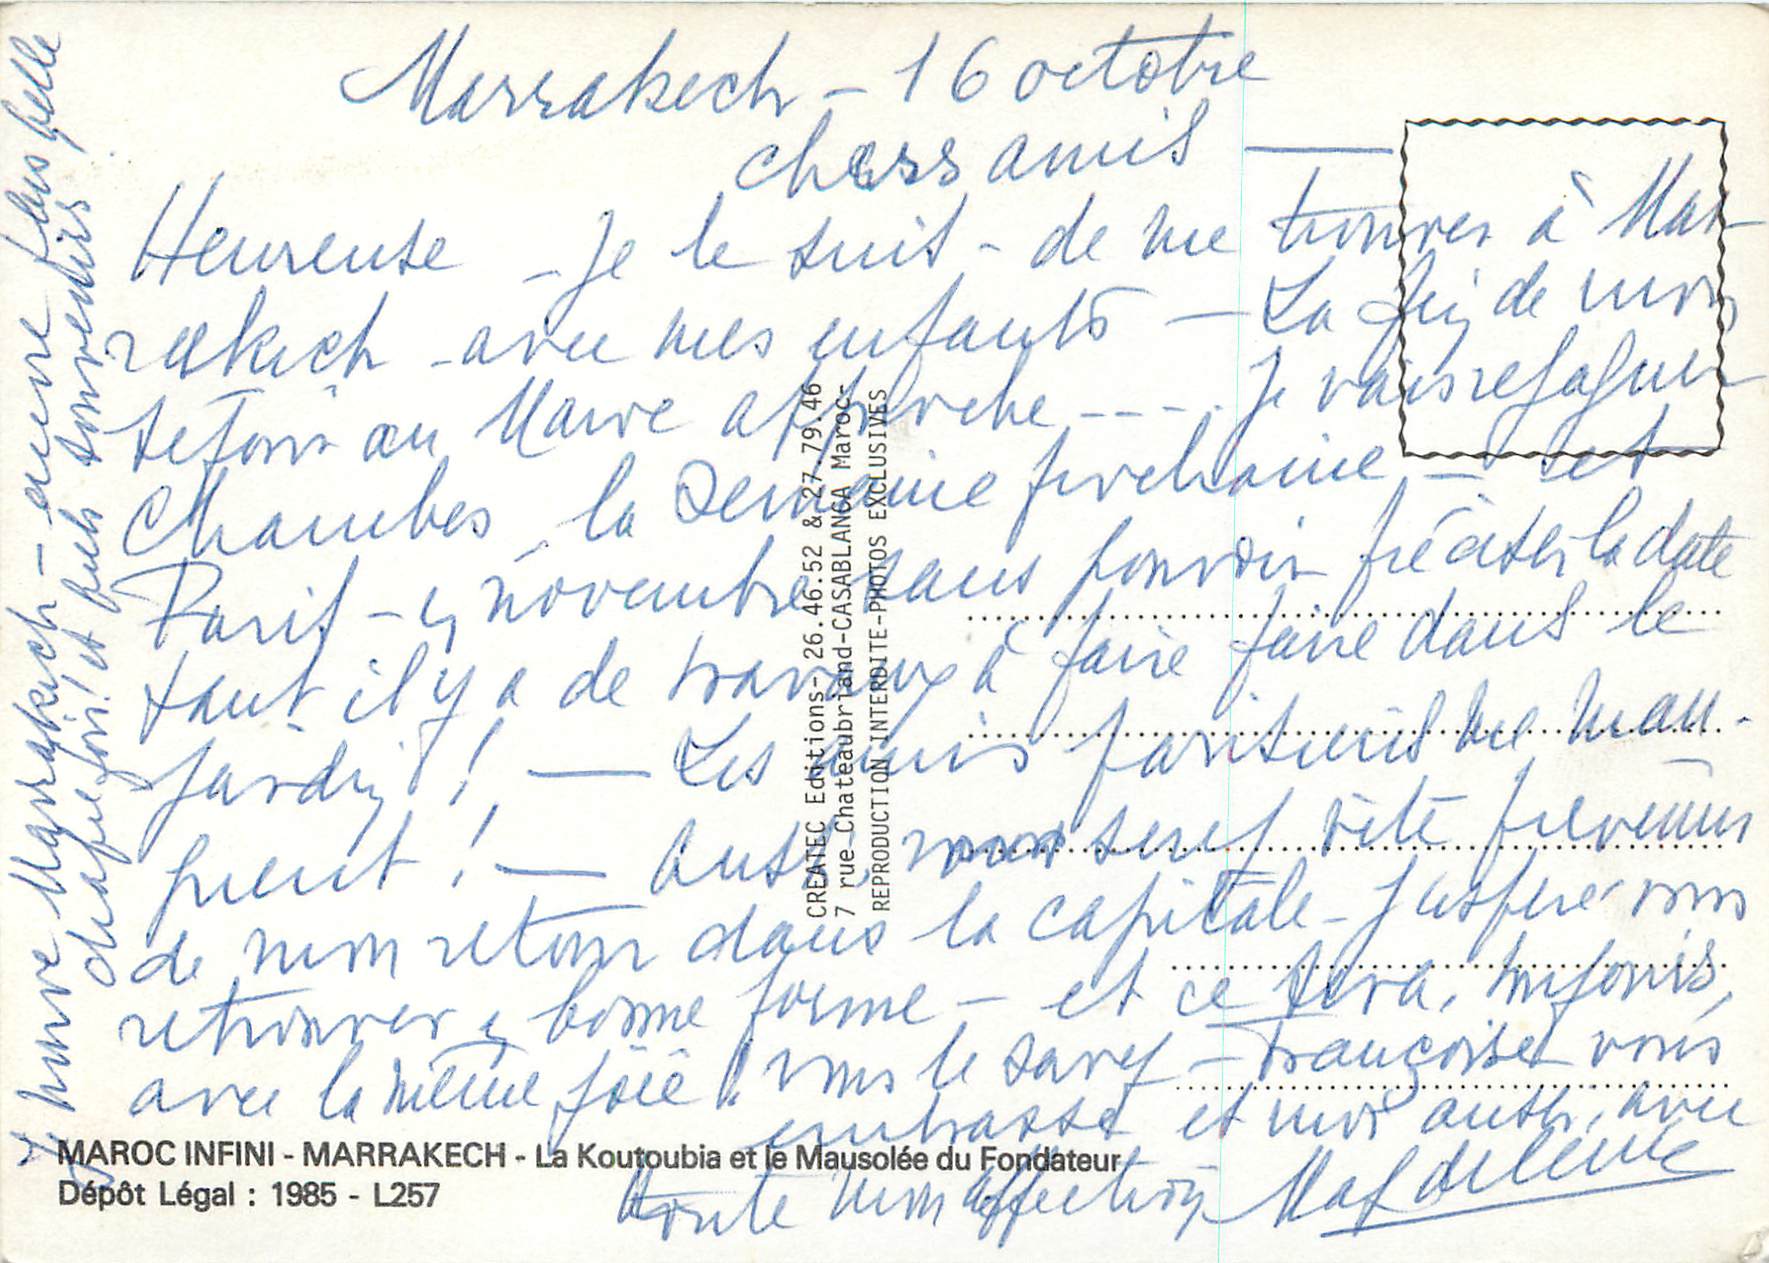 Marrakech - 16 octobre
chers amis
Heureuse - je le suis - de me trouver à Mar-
rakech - avec mes enfants - La fin de mon
séjour au Maroc approche ---- Je vais regagner
Chambes la semaine prochaine - et
Paris - en novembre sans pouvoir préciser la date
tant il y a de travaux à faire faire dans le
jardin ! - Les amis parisiens me man-
quent ! - Aussi, vous serez vite prévenus
de mon retour dans la capitale - J'espère vous
retrouver en bonne forme - et ce sera, toujours,
avec la même joie ! vous le savez - Françoise vous
embrasse et moi aussi, avec
toute mon affection Magdeleine
Je trouve Marrakech - encore plus belle
chaque fois ! et quels souvenirs
CREATEC Editions- 26.46.52 & 27.79.46
7 rue Chateaubriand-CASABLANCA Maroc-
REPRODUCTION INTERDITE-PHOTOS EXCLUSIVES
MAROC INFINI - MARRAKECH - La Koutoubia et le Mausolée du Fondateur
Dépôt Légal : 1985 - L257